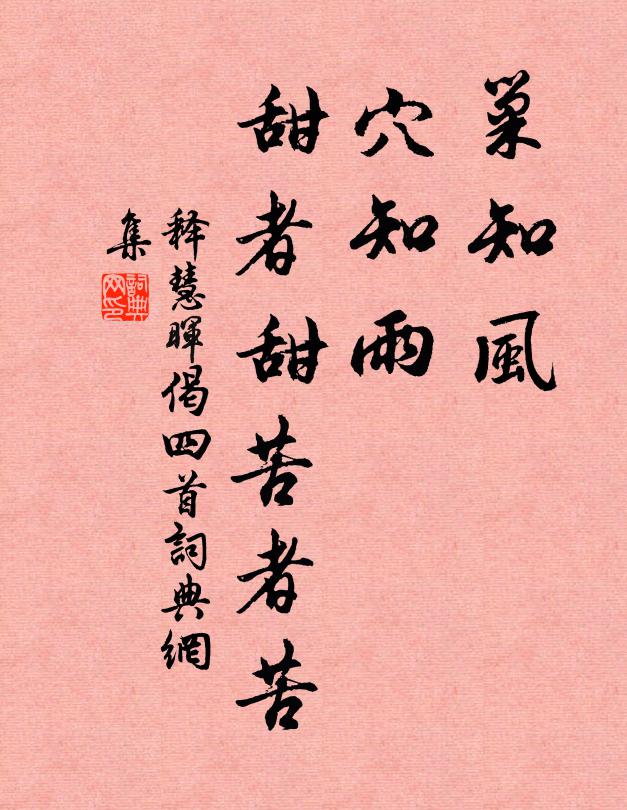 巢知風
穴知雨
甜者甜苦者苦
释慧暉偈四首詞典網
集
詞典
网印